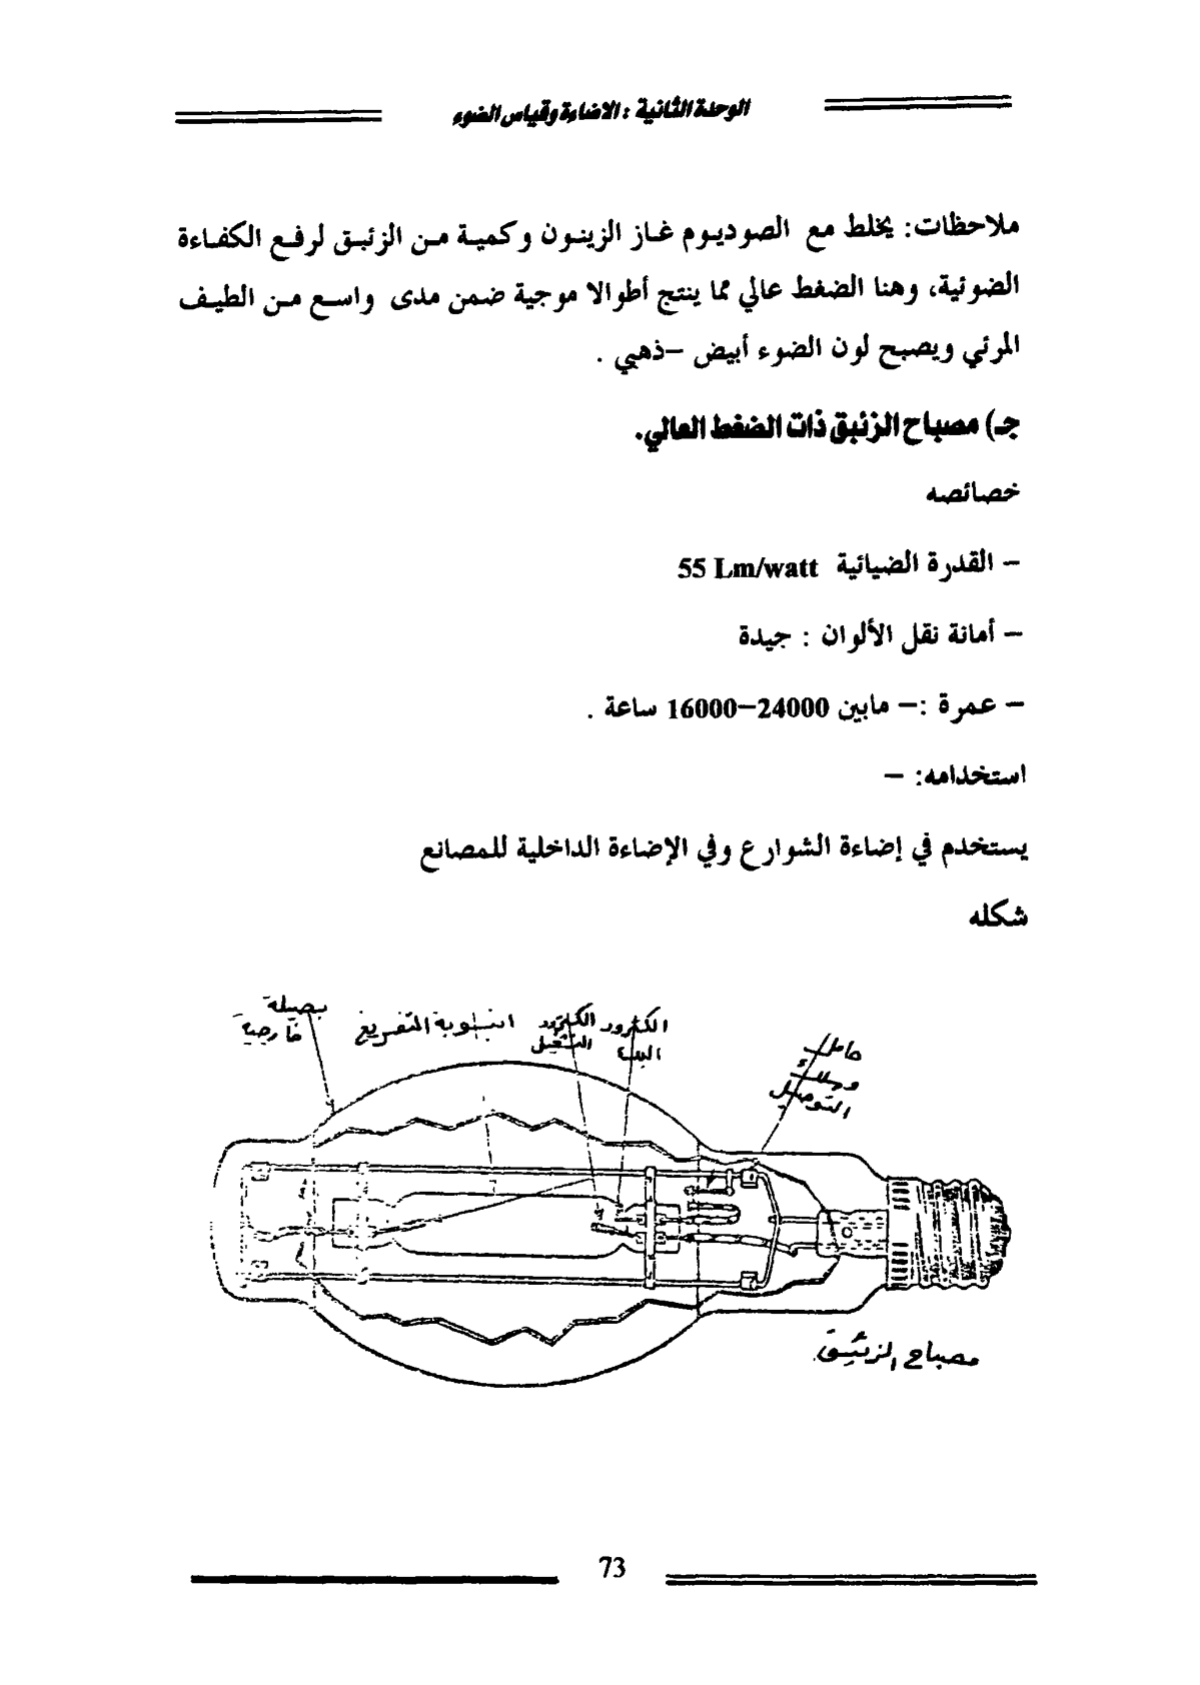 الوحدة الثانية : الاضاءة وقياس الضوء
ملاحظات: يخلط مع الصوديوم غاز الزينون وكمية من الزئبق لرفع الكفاءة
الضوئية، وهنا الضغط عالي مما ينتج أطوالا موجية ضمن مدى واسع من الطيف
المرئي ويصبح لون الضوء أبيض –ذهبي .
جـ) مصباح الزئبق ذات الضغط العالي.
خصائصه
– القدرة الضيائية 55 Lm/watt
– أمانة نقل الألوان : جيدة
– عمرة :– مابين 24000–16000 ساعة .
استخدامه: –
يستخدم في إضاءة الشوارع وفي الإضاءة الداخلية للمصانع
شكله
حامل
وصلاء
التوصيل
الكترود
البدء
الكترود
التشغيل
انبوبة التفريغ
بصيلة
خارجية
مصباح الزئبق
73